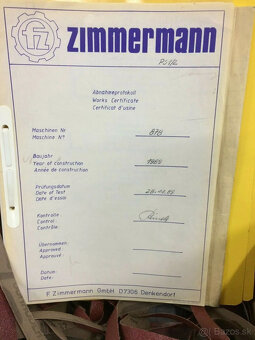 fz zimmermann
Abnahmeprotokoll
Works Certificate
Certificat d'usine
Maschinen Nr
Machine Nº
878
Baujahr
Year of construction
Année de construction
1989
Prüfungsdatum
Date of Test
Date d'essai
Kontrolle
Control
Contrôle:
Übernommen:
Approved
Approuvé
Datum:
Date:
F. Zimmermann GmbH D7306 Denkendorf
bazos.sk